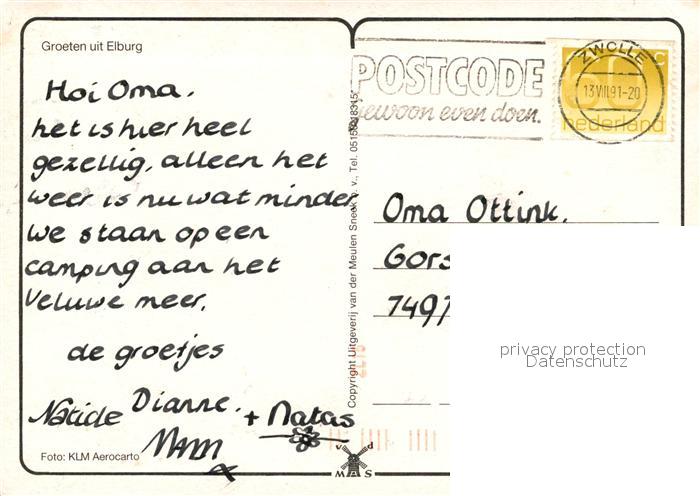 Groeten uit Elburg
Hoi Oma.
het is hier heel
gezellig, alleen het
weer is nu wat minder
We staan op een
camping aan het
Veluwe meer.
de groetjes
Dianne.
+ Natas
Foto: KLM Aerocarto
Copyright Uitgeverij van der Meulen Sneek b.v., Tel.
POSTCODE
gewoon even doen.
ZWOLLE
13 VIII.91-20
60 c
nederland
Oma Ottink.
Gors
7497
privacy protection
Datenschutz
v d
M A S